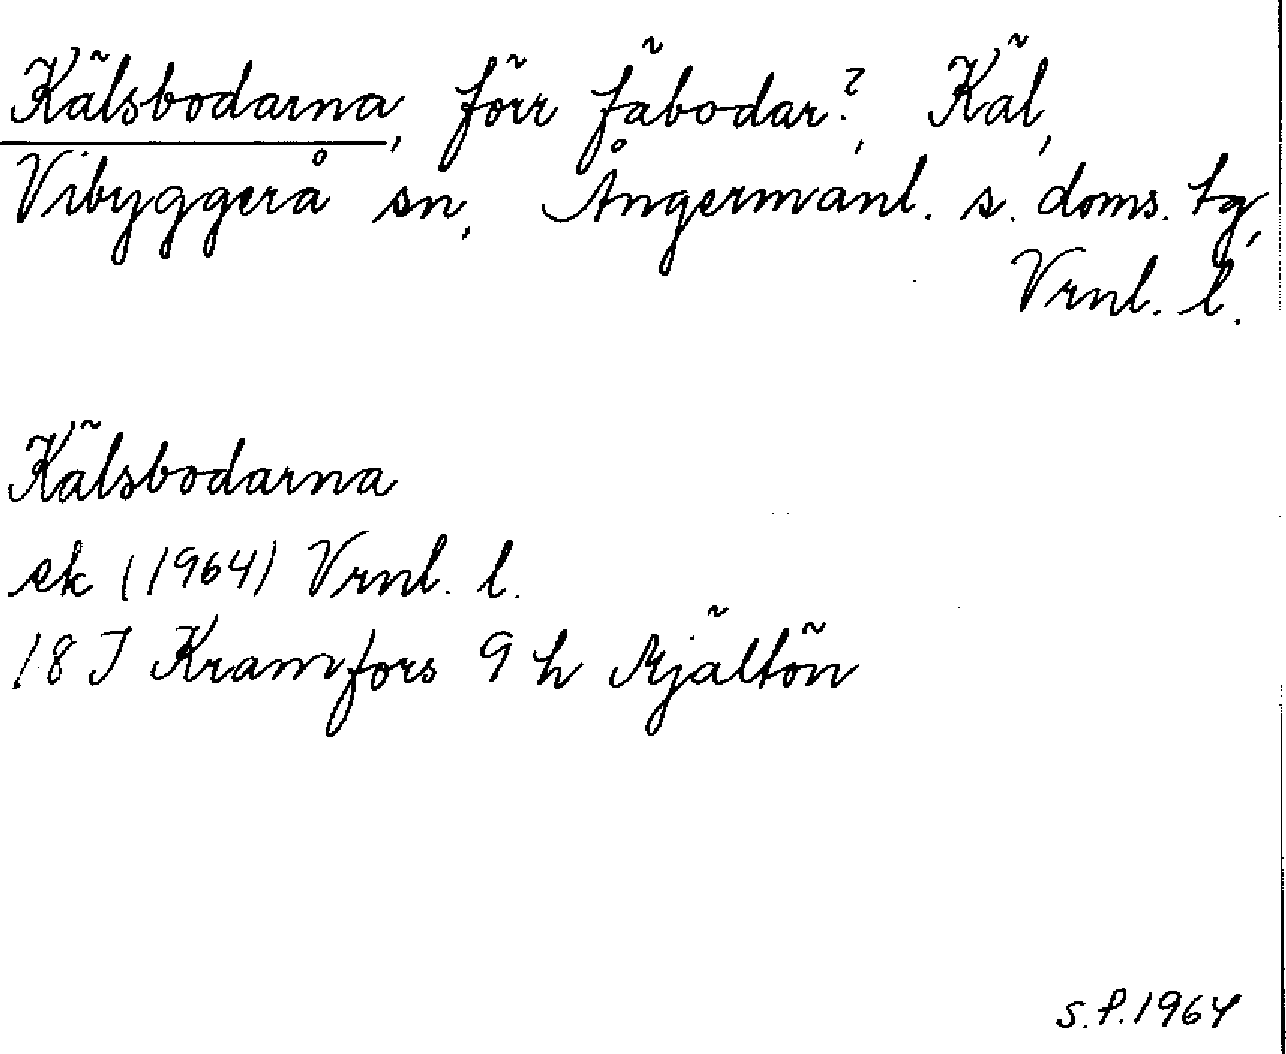 Kälsbodarna, förr fäbodar?, Käl,
Vibyggerå sn, Ångermanl. s. doms. tg,
Vrnl. l.
Kälsbodarna
ek (1964) Vrnl. l.
18 I Kramfors 9 h Mjältön
S.P. 1964